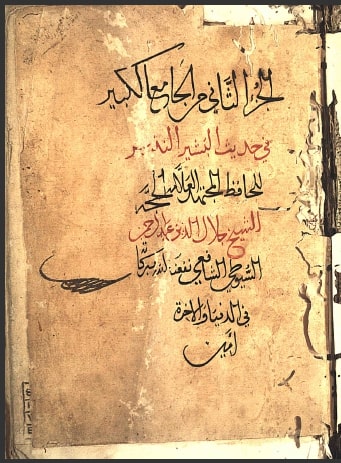 الجزء الثاني من الجامع الكبير
في حديث البشير النذير
للحافظ المجتهد العلامة الحجة
الشيخ جلال الدين عبد الرحمن
السيوطي الشافعي نفعنا الله ببركاته
في الدنيا والاخرة
امين